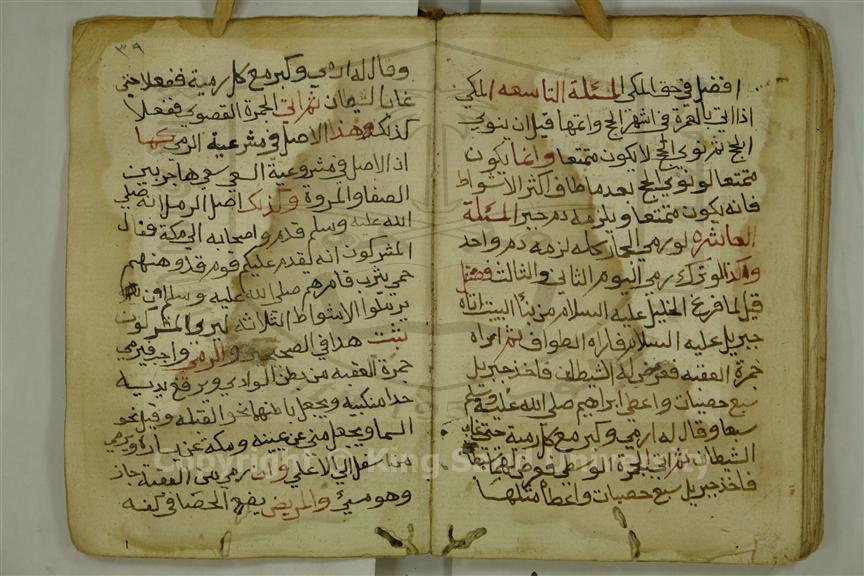 افضل في حق المكي المسئلة التاسعه المكي
اذا اتي بالعمرة في اشهر الحج واتمها قبل ان ينوي
الحج ثم نوي الحج لا يكون متمتعا وانما يكون
متمتعا لو نوي الحج بعد ما طاف اكثر الاشواط
فانه يكون متمتعا ويلزمه دم جبر المسئلة
العاشره لو رمي الجمار كله لزمه دم واحد
وكذا لو ترك رمي اليوم الثاني والثالث فصل
قيل لما فرغ الخليل عليه السلام من بنأ البيت اتاه
جبريل عليه السلام فاراه الطواف ثم اراه
جمرة العقبه فعرض له الشيطان فاخذ جبريل
سبع حصيات واعطي ابراهيم صلي الله عليه
سبعا وقال له ارمي وكبر مع كل رمية حتي غاب
الشيطان ثم اتي الجمرة الوسطي فعرض لهما
فاخذ جبريل سبع حصيات واعطاه مثلها
٣٩
وقال له ارمي وكبر مع كل رمية ففعلا حتي
غاب الشيطان ثم اتي الجمرة القصوي ففعلا
كذلك وهذا الاصل في مشرعية الرمي كما
اذ الاصل في مشروعية السعي سعي هاجر بين
الصفا والمروة وكذلك اصل الرمل انه صلي
الله عليه وسلم قدم واصحابه الي مكة فقال
المشركون انه ليقدم عليكم قوم قد وهنهم
حمي يثرب فامرهم صلي الله عليه وسلم ان
يرملوا الاشواط الثلاثه ليروا المشركون
ثبت هدا في الصحيحين والرمي واجب فيرمي
جمرة العقبه من بطن الوادي ويرفع يديه
حدا منكبيه ويجعل باطنهما نحو القبله وقيل نحو
السما ويجعل مني عن يمينه ومكة عن يساره ويرمي
من سفل الي الاعلي وان رمي من العقبة جاز
وهو مسيء والمريض يضع الحصا في كفه
Copyright © King Saud University